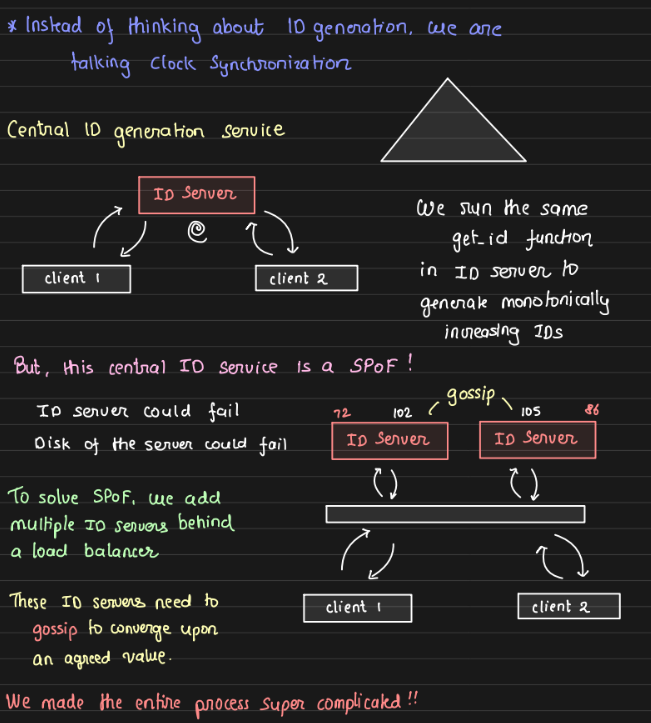 * Instead of thinking about ID generation, we are
talking Clock Synchronization
Central ID generation service
ID Server
client 1
client 2
We run the same
get_id function
in ID server to
generate monotonically
increasing IDs
But, this central ID service is a SPoF!
ID server could fail
Disk of the server could fail
gossip
72 102 105 86
ID Server ID Server
To solve SPoF, we add
multiple ID servers behind
a load balancer
These ID servers need to
gossip to converge upon
an agreed value.
client 1 client 2
We made the entire process super complicated!!